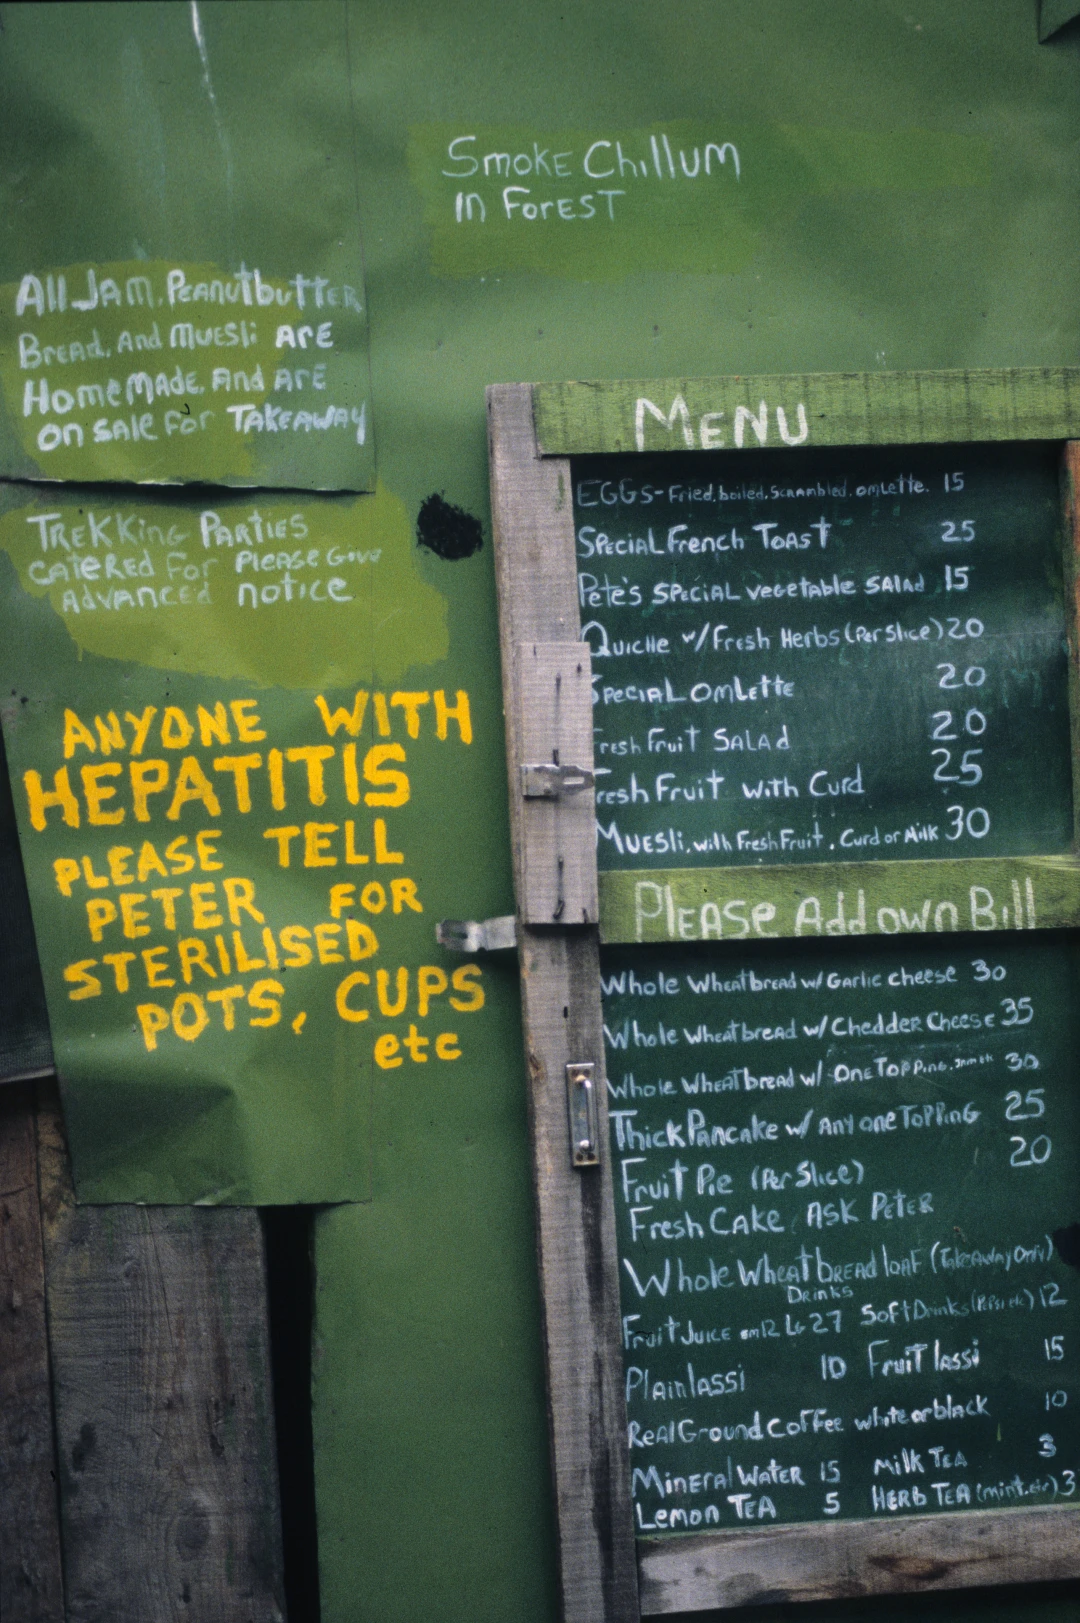 Smoke Chillum
in Forest
All Jam, Peanutbutter
Bread, And Muesli Are
HomeMade, And Are
on sale For Takeaway
Trekking Parties
catered For Please Give
Advanced notice
ANYONE WITH
HEPATITIS
PLEASE TELL
PETER FOR
STERILISED
POTS, CUPS
etc
Menu
EGGS-Fried, boiled, Scrambled, omlette. 15
Special French Toast 25
Pete's special vegetable salad 15
Quiche w/Fresh Herbs (Per Slice) 20
Special Omlette 20
Fresh Fruit Salad 20
Fresh Fruit with Curd 25
Muesli, with Fresh Fruit, Curd or Milk 30
Please Add own Bill
Whole Wheatbread w/ Garlic cheese 30
Whole wheatbread w/ Chedder Cheese 35
Whole Wheatbread w/ One Topping, 30
Thick Pancake w/ Any one Topping 25
Fruit Pie (Per Slice) 20
Fresh Cake Ask Peter
Whole Wheat bread loaf (Takeaway Only)
Drinks
Fruit Juice sm12 Lg 27 Soft Drinks 12
Plain lassi 10 Fruit lassi 15
Real Ground Coffee white or black 10
Mineral Water 15 Milk Tea 3
Lemon Tea 5 Herb Tea (mint, etc) 3